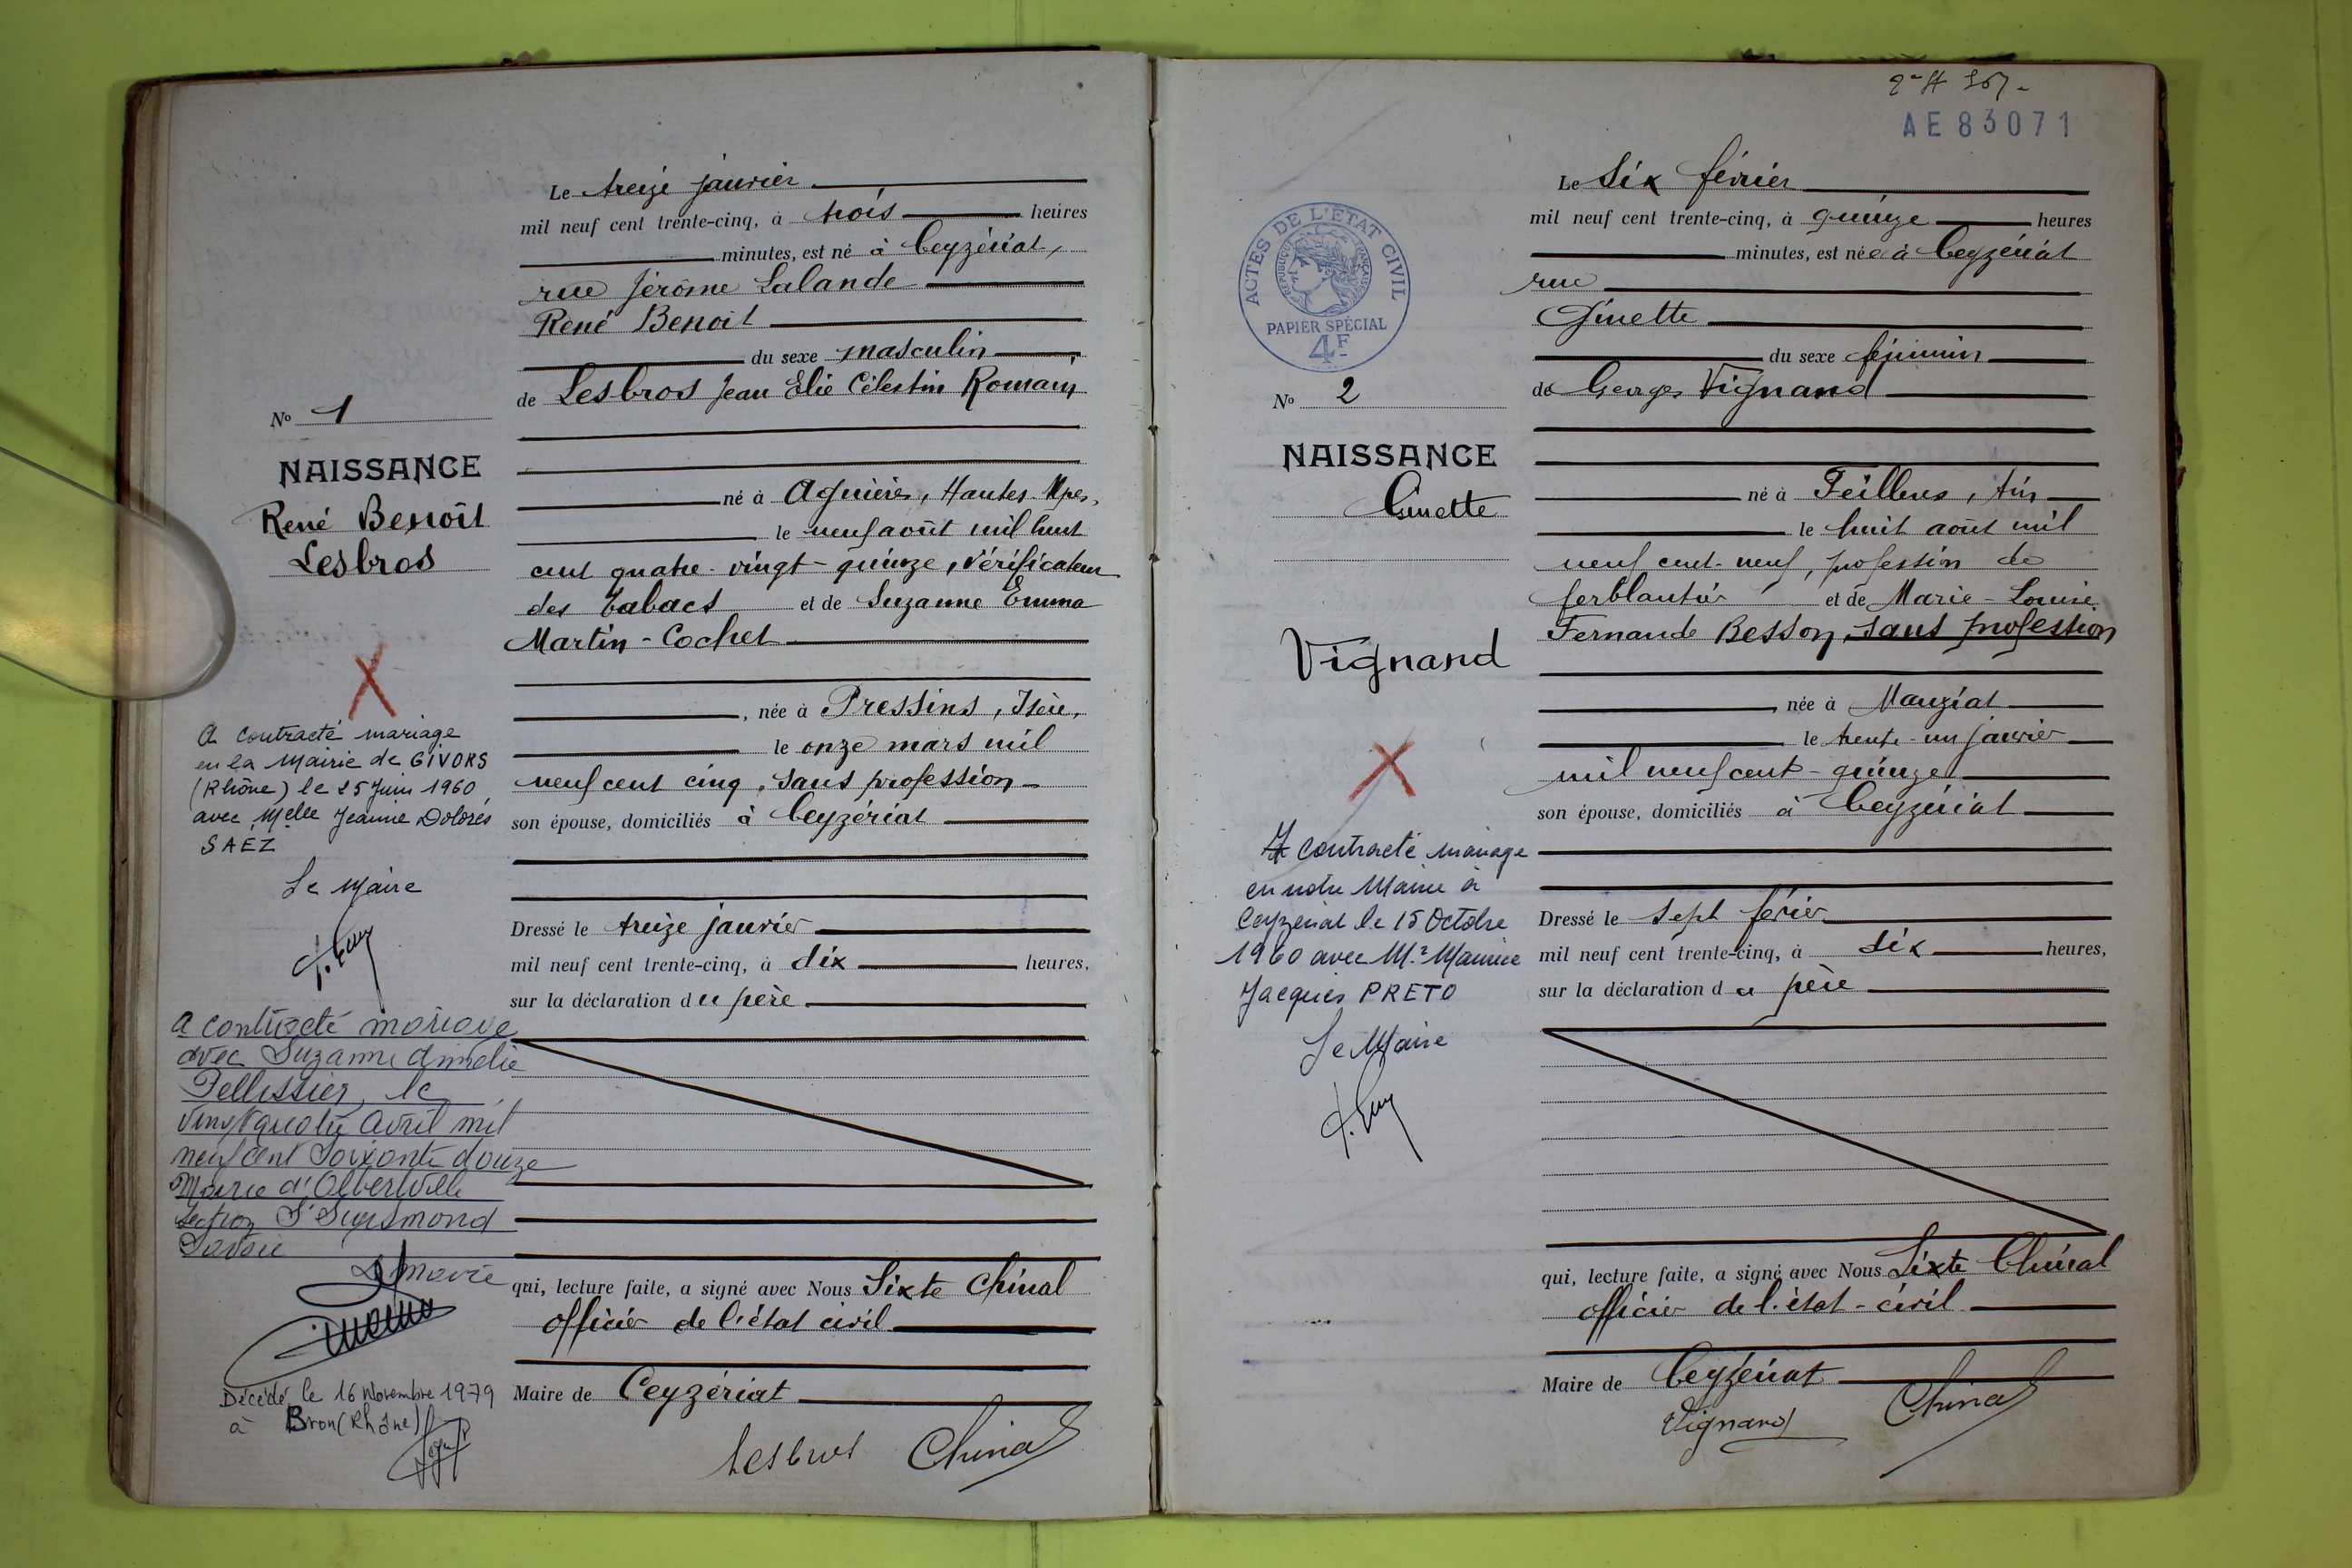 Le treize janvier
mil neuf cent trente-cinq, à trois heures
minutes, est né à Ceyzériat,
rue Jérôme Lalande
René Benoit
du sexe masculin
de Lesbros Jean Elie Célestin Romain
No 1
NAISSANCE
René Benoît
Lesbros
né à Agnières, Hautes-Alpes,
le neuf août mil huit
cent quatre-vingt-quinze, vérificateur
des tabacs et de Suzanne Emma
Martin-Cochet
, née à Pressins, Isère,
le onze mars mil
neuf cent cinq, sans profession
son épouse, domiciliés à Ceyzériat
A contracté mariage
en la Mairie de GIVORS
(Rhône) le 25 Juin 1960
avec Melle Jeanine Dolorés
SAÉZ
Le Maire
Dressé le treize janvier
mil neuf cent trente-cinq, à dix heures,
sur la déclaration du père
a contracté mariage
avec Suzanne Amélie
Pellissier, le
vingt quatre avril mil
neuf cent soixante douze
Mairie d'Albertville
section St Sigismond
Savoie
Le Maire
qui, lecture faite, a signé avec Nous Sixte Chinal
officier de l'état civil
Maire de Ceyzériat
Décédé le 16 Novembre 1979
à Bron (Rhône)
Lesbros Chinal
AE83071
Le Six février
mil neuf cent trente-cinq, à quinze heures
minutes, est née à Ceyzériat
rue
Ginette
du sexe féminin
de Georges Vignand
ACTES DE L'ÉTAT CIVIL
RÉPUBLIQUE FRANÇAISE
PAPIER SPÉCIAL
4F
No 2
NAISSANCE
Ginette
Vignand
né à Feillens, Ain
le huit août mil
neuf cent-neuf, profession de
ferblantier et de Marie-Louise
Fernande Besson, sans profession
née à Manziat
le trente-un janvier
mil neuf cent-quinze
son épouse, domiciliés à Ceyzériat
A contracté mariage
en notre Mairie à
Ceyzériat le 15 Octobre
1960 avec Mr Maurice
Jacques PRETO
Le Maire
Dressé le sept février
mil neuf cent trente-cinq, à dix heures,
sur la déclaration du père
qui, lecture faite, a signé avec Nous Sixte Chinal
officier de l'état-civil
Maire de Ceyzériat
Vignand Chinal